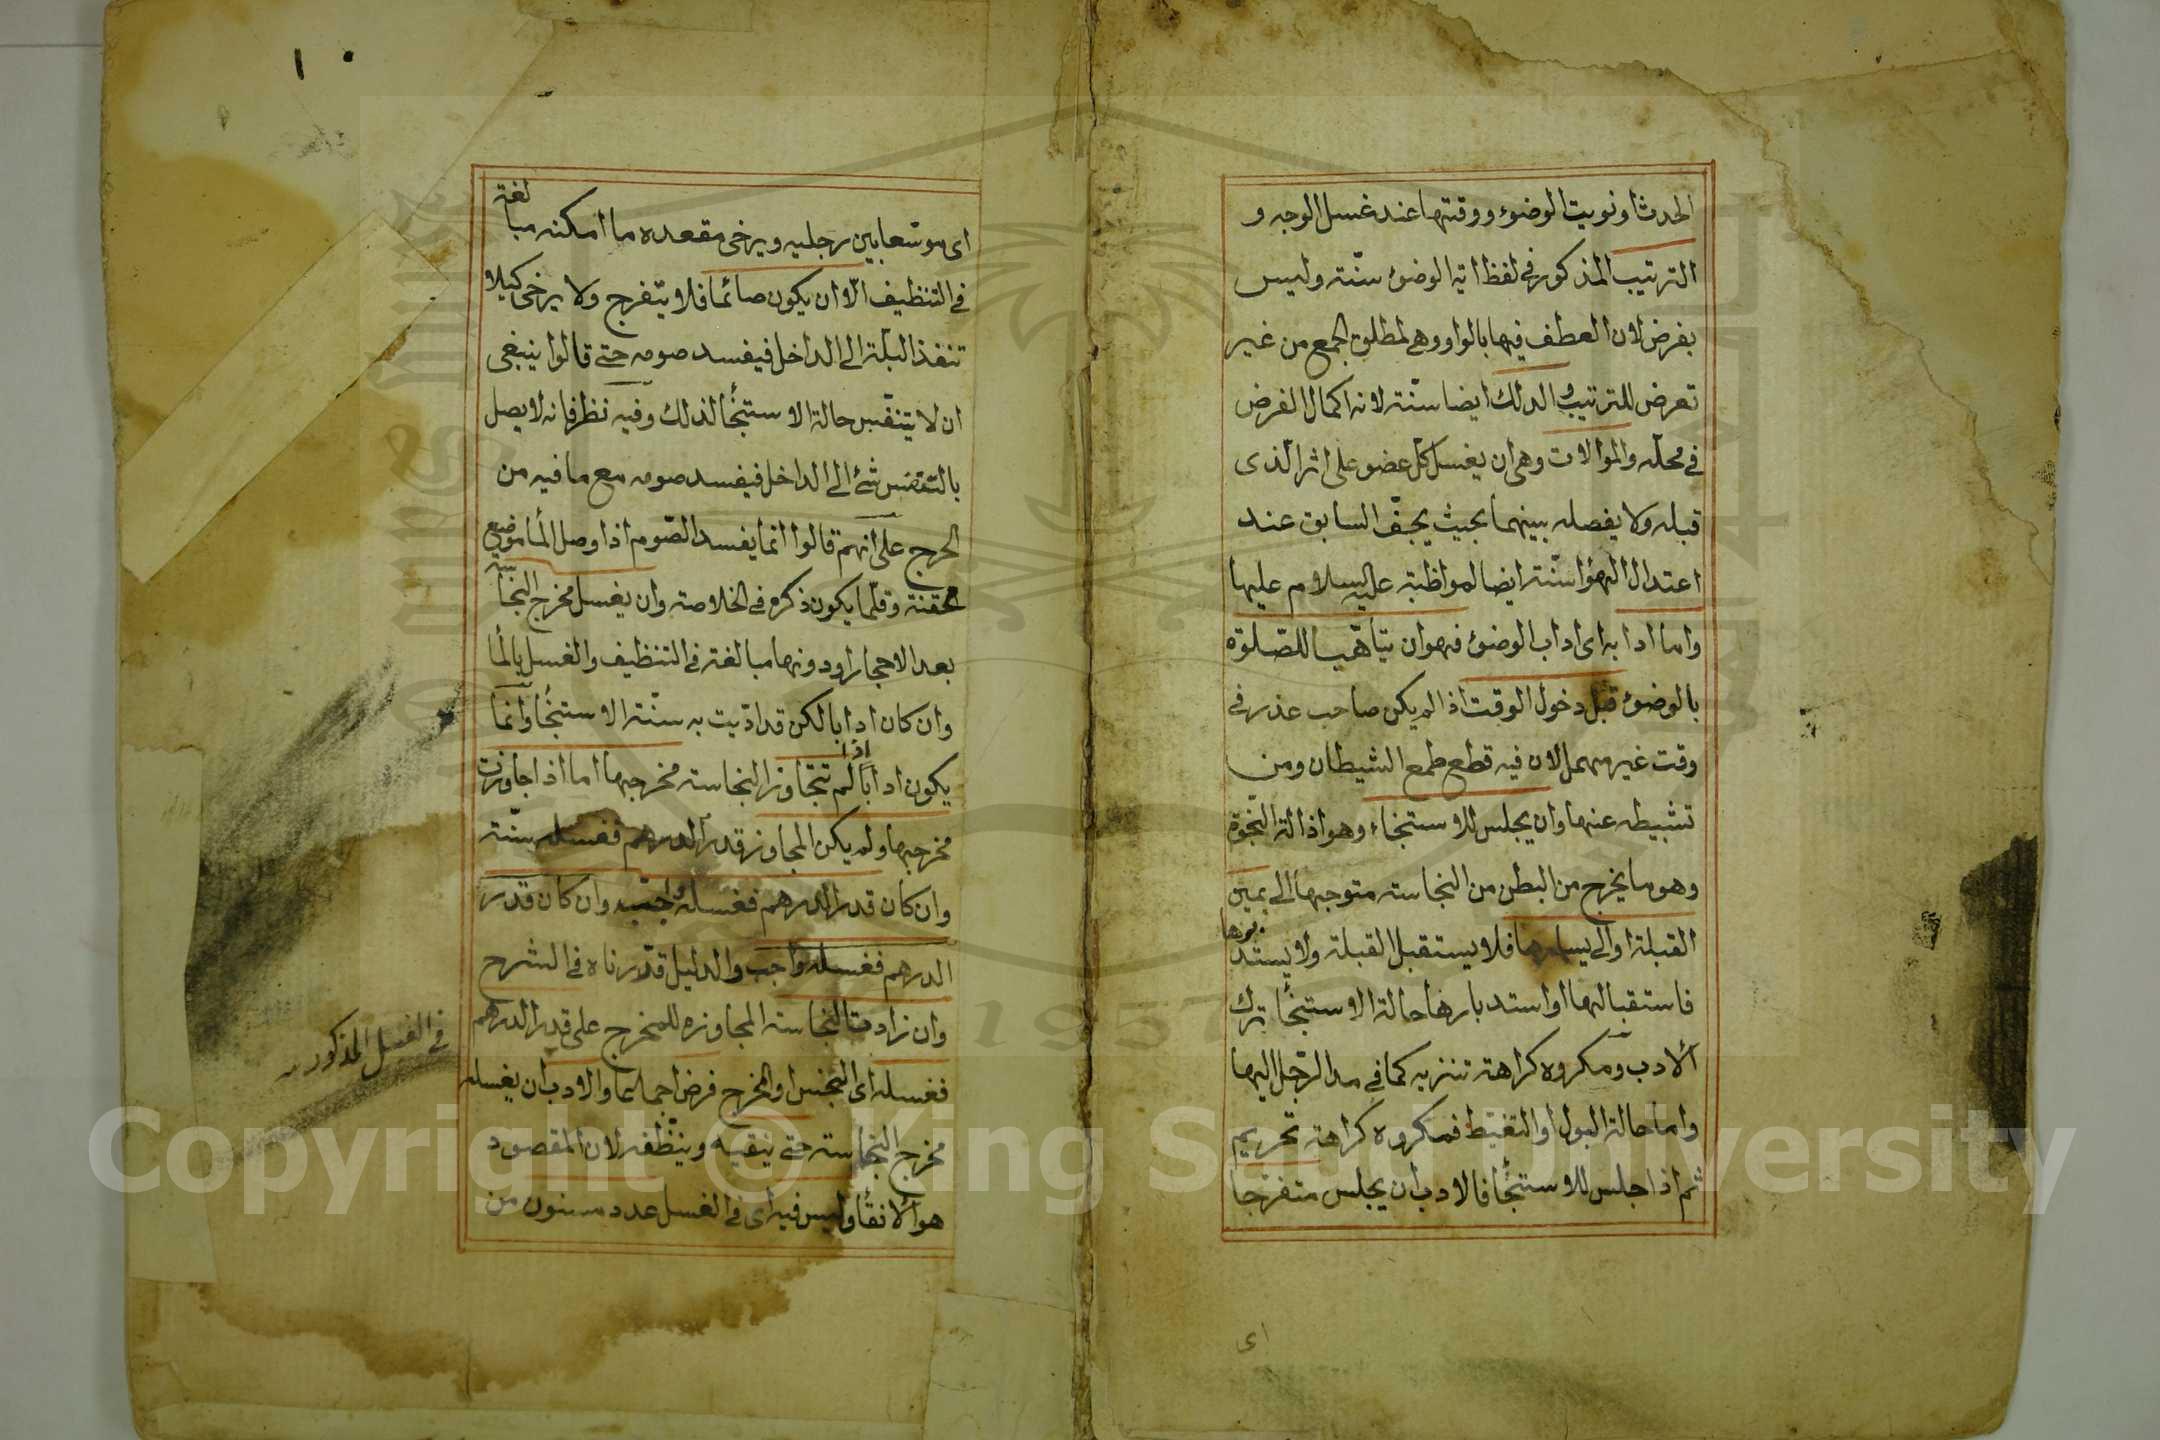 الحدث او نويت الوضوء ووقتها عند غسل الوجه و
الترتيب المذكور في لفظ اية الوضوء سنّة وليس
بفرض لان العطف فيها بالواو وهي لمطلق الجمع من غير
تعرض للترتيب والدلك ايضا سنّة لانه اكمال الفرض
في محلّه والموالات وهي ان يغسل كل عضو على اثر الذى
قبله ولا يفصله بينهما بحيث يجفّ السابق عند
اعتدال الهوا سنّة ايضا لمواظبة عليه السلام عليها
واما ادابه اى اداب الوضوء فهو ان يتأهّب للصّلوة
بالوضوء قبل دخول الوقت اذا لم يكن صاحب عذر في
وقت غير مهمل لان فيه قطع طمع الشيطان ومن
تشبيطه عنها وان يجلس للاستنجاء وهو اذالة النّجوة
وهو ما يخرج من البطن من النجاسة متوجها الى يمين
القبلة او الى يسارها فلا يستقبل القبلة ولا يستدبرها
فاستقبالها او استدبارها حالة الاستنجأ ترك
الادب ومكروه كراهة تنزيه كما في مد الرّجل اليها
واما حالة البول او التغيّط فمكروه كراهة تحريم
ثم اذا جلس للاستنجأ فالادب ان يجلس متفرّجا
اى
١٠
اى موسّعا بين رجليه ويرخى مقعده ما امكنه مبالغة
في التنظيف الّا ان يكون صائما فلا يتفرج ولا يرخى كيلا
تنفذ البلّة الى الداخل فيفسد صومه حتى قالوا ينبغى
ان لا يتنفّس حالة الاستنجأ لذلك وفيه نظر فانه لا يصل
بالتنفّس شئ الى الداخل فيفسد صومه مع ما فيه من
الحرج على انهم قالوا انما يفسد الصّوم اذا وصل الما موضع
المحقنة وقلّما يكون ذكره في الخلاصة وان يغسل مخرج النجاسة
بعد الاحجار او دونها مبالغة في التنظيف والغسل بالما
وان كان ادابا لكن قد ادّيت به سنّة الاستنجأ وانّما
يكون ادابا اذا لم تتجاوز النجاسة مخرجها اما اذا جاوزت
مخرجها ولم يكن المجاوز قدر الدرهم فغسله سنّة
وان كان قدر الدرهم فغسله واجب وان كان قدر
الدرهم فغسله واجب والدليل قدّرناه في الشرح
وان زادت النجاسة المجاوزه للمخرج على قدر الدرهم
فغسله اى النجس او المخرج فرض اجماعا والادب ان يغسله
مخرج النجاسة حتى ينقيه وينظّفه لان المقصود
هو الانقا وليس فيه اى في الغسل عدد مسنون من
في الغسل المذكور
Copyright © King Saud University
1957